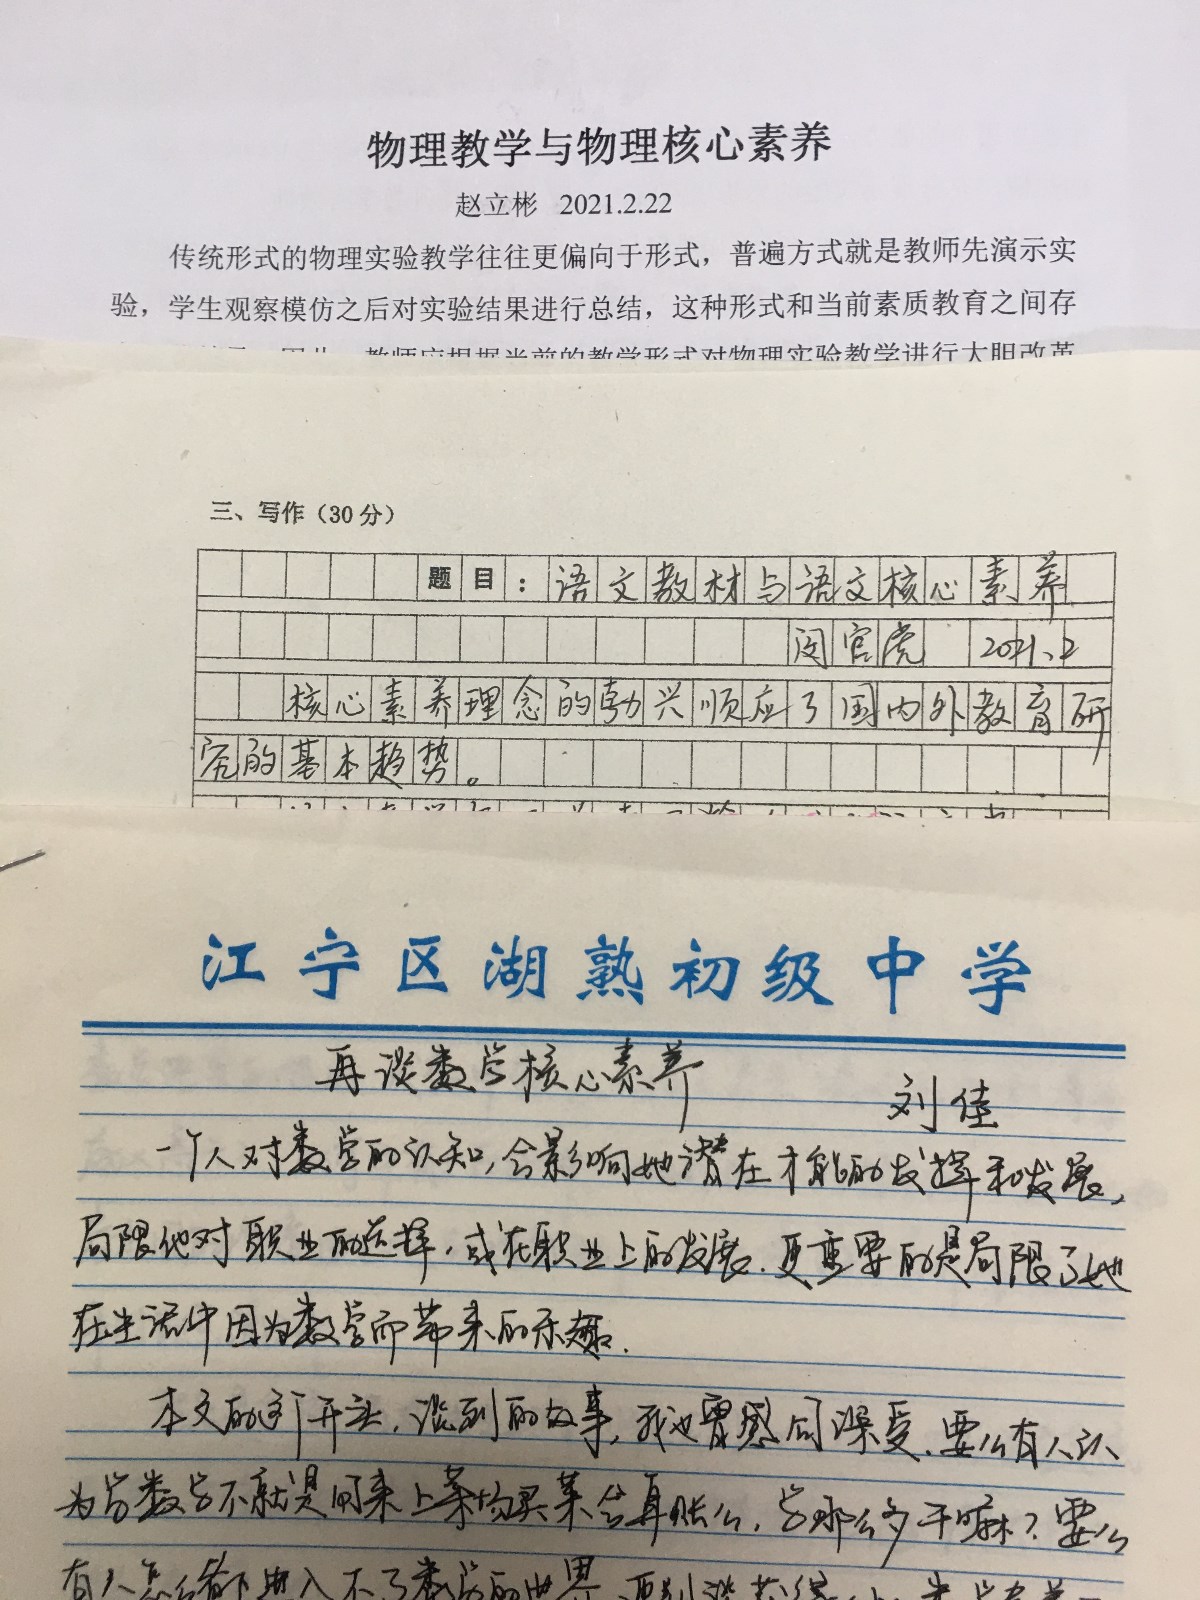 物理教学与物理核心素养
赵立彬 2021.2.22
传统形式的物理实验教学往往更偏向于形式，普遍方式就是教师先演示实
验，学生观察模仿之后对实验结果进行总结，这种形式和当前素质教育之间存
教师应根据当前的教学形式对物理实验教学进行大胆改革
三、写作（30分）
题目：语文教材与语文核心素养
闵官虎 2021.2
核心素养理念的勃兴顺应了国内外教育研
究的基本趋势。
江宁区湖熟初级中学
再谈数学核心素养
刘佳
一个人对数学的认知，会影响她潜在才能的发挥和发展，
局限他对职业的选择，或在职业上的发展．更重要的是局限了她
在生活中因为数学而带来的乐趣．
本文的这个开头，谈到的故事，我也曾感同深受．要么有人认
为学数学不就是用来上菜场买菜会算账么，学那么多干嘛？要么
有人怎么都进入不了数学的世界